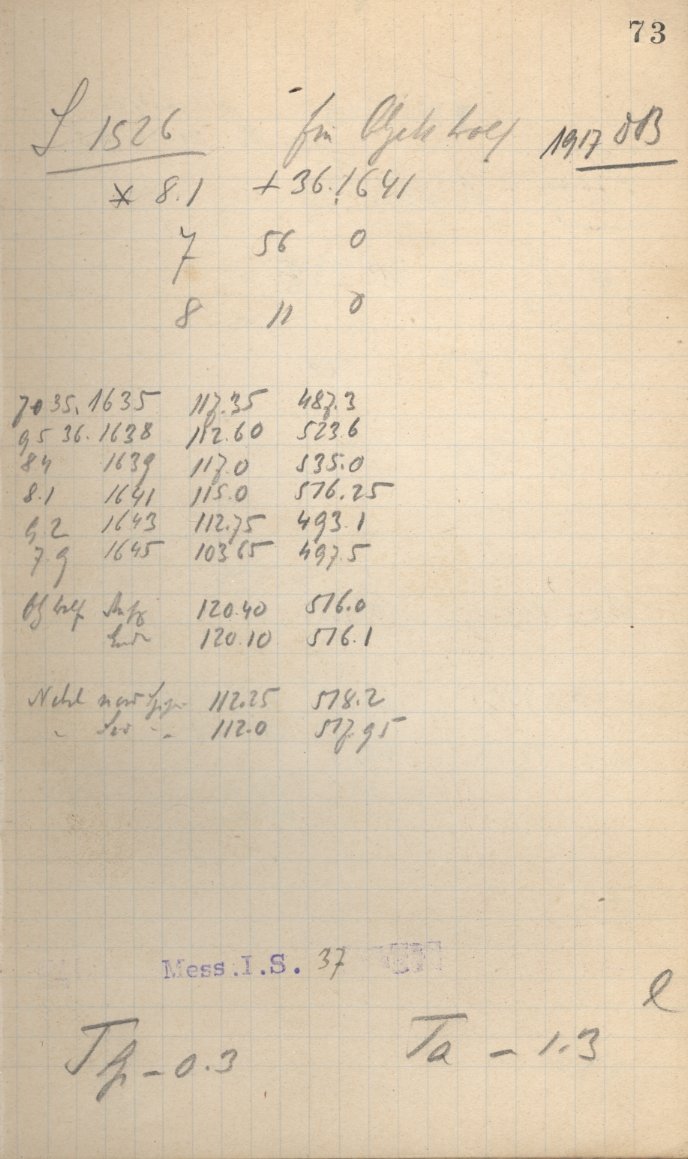 73
S 1526 für Objekt Wolf 1917 DB
* 8.1 + 36.1641
7 56 0
8 11 0
70 35.1635 117.35 487.3
95 36.1638 112.60 523.6
84 1639 117.0 535.0
8.1 1641 115.0 516.25
9.2 1643 112.75 493.1
7.9 1645 103.65 497.5
Obj Wolf Anfg 120.40 516.0
Ende 120.10 516.1
112.25 518.2
112.0 517.95
Mess.I.S. 37
l
- 0.3 Ta - 1.3